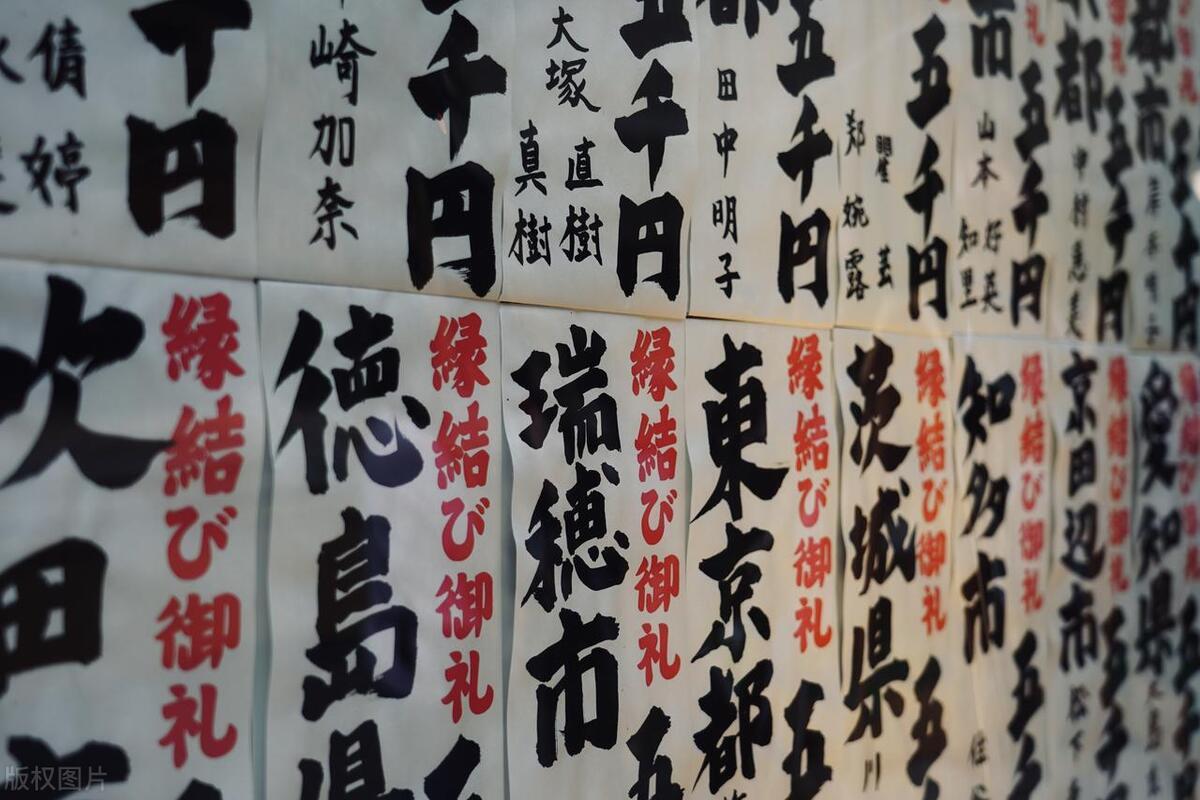 五千円
都
中村恵美
五千円
市
山本
好英
知里
五千円
鄭婉露
五千円
都
田中明子
五千円
大塚直樹
真樹
千円
崎加奈
千円
倩
婷
縁結び御礼
愛知県
縁結び御礼 五千
京田辺市
松下
縁結び御礼 五千
知多市
縁結び御礼 五
茨城県
川
縁結び御礼 五
東京都
縁結び御礼 五
瑞穂市
縁結び御礼
徳島県
縁結び御礼
吹田市
版权图片